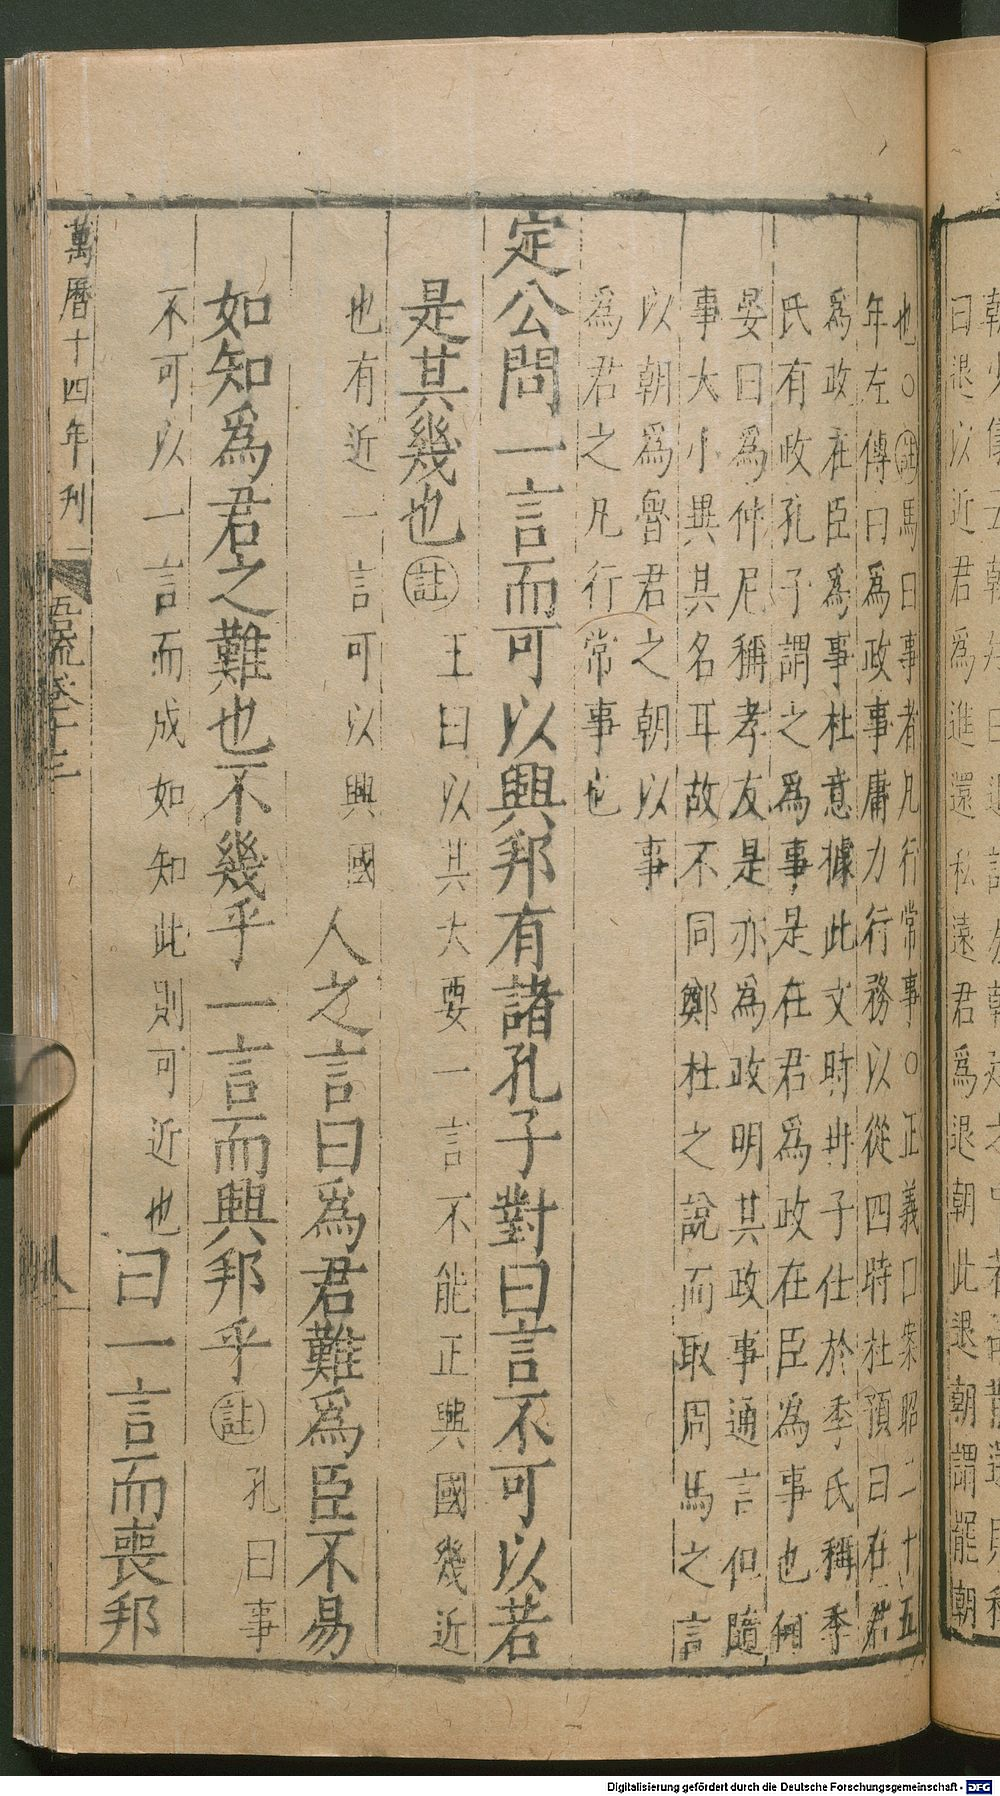 也○註馬曰事者凡行常事○正義曰案昭二十五
年左傳曰爲政事庸力行務以從四時杜預曰在君
爲政在臣爲事杜意據此文時冉子仕於季氏稱季
氏有政孔子謂之爲事是在君爲政在臣爲事也何
晏曰爲仲尼稱孝友是亦爲政明其政事通言但隨
事大小異其名耳故不同鄭杜之說而取周馬之言
以朝爲魯君之朝以事
爲君之凡行常事也
定公問一言而可以興邦有諸孔子對曰言不可以若
是其幾也註王曰以其大要一言不能正興國幾近
也有近一言可以興國人之言曰爲君難爲臣不易
如知爲君之難也不幾乎一言而興邦乎註孔曰事
不可以一言而成如知此則可近也曰一言而喪邦
萬曆十四年刊
卷十三
八
Digitalisierung gefördert durch die Deutsche Forschungsgemeinschaft - DFG